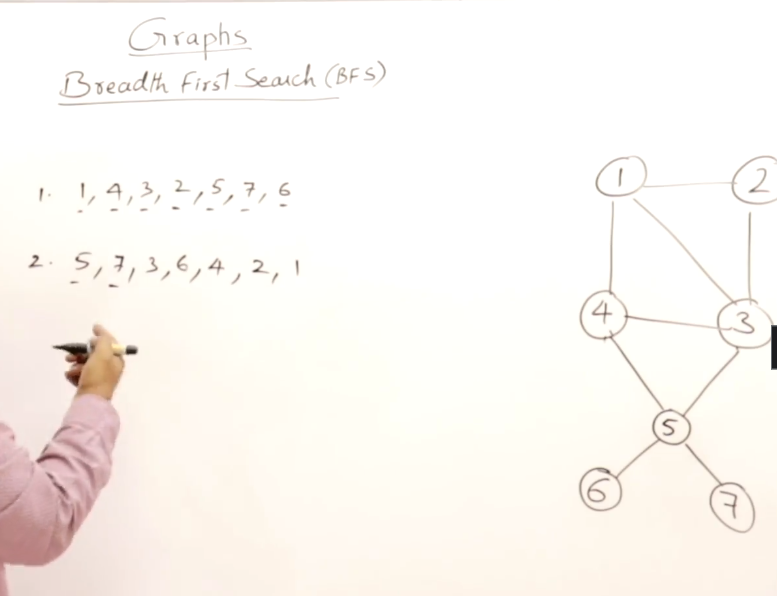 Graphs
Breadth First Search (BFS)
1. 1, 4, 3, 2, 5, 7, 6
2. 5, 7, 3, 6, 4, 2, 1
1 2
4 3
5
6 7